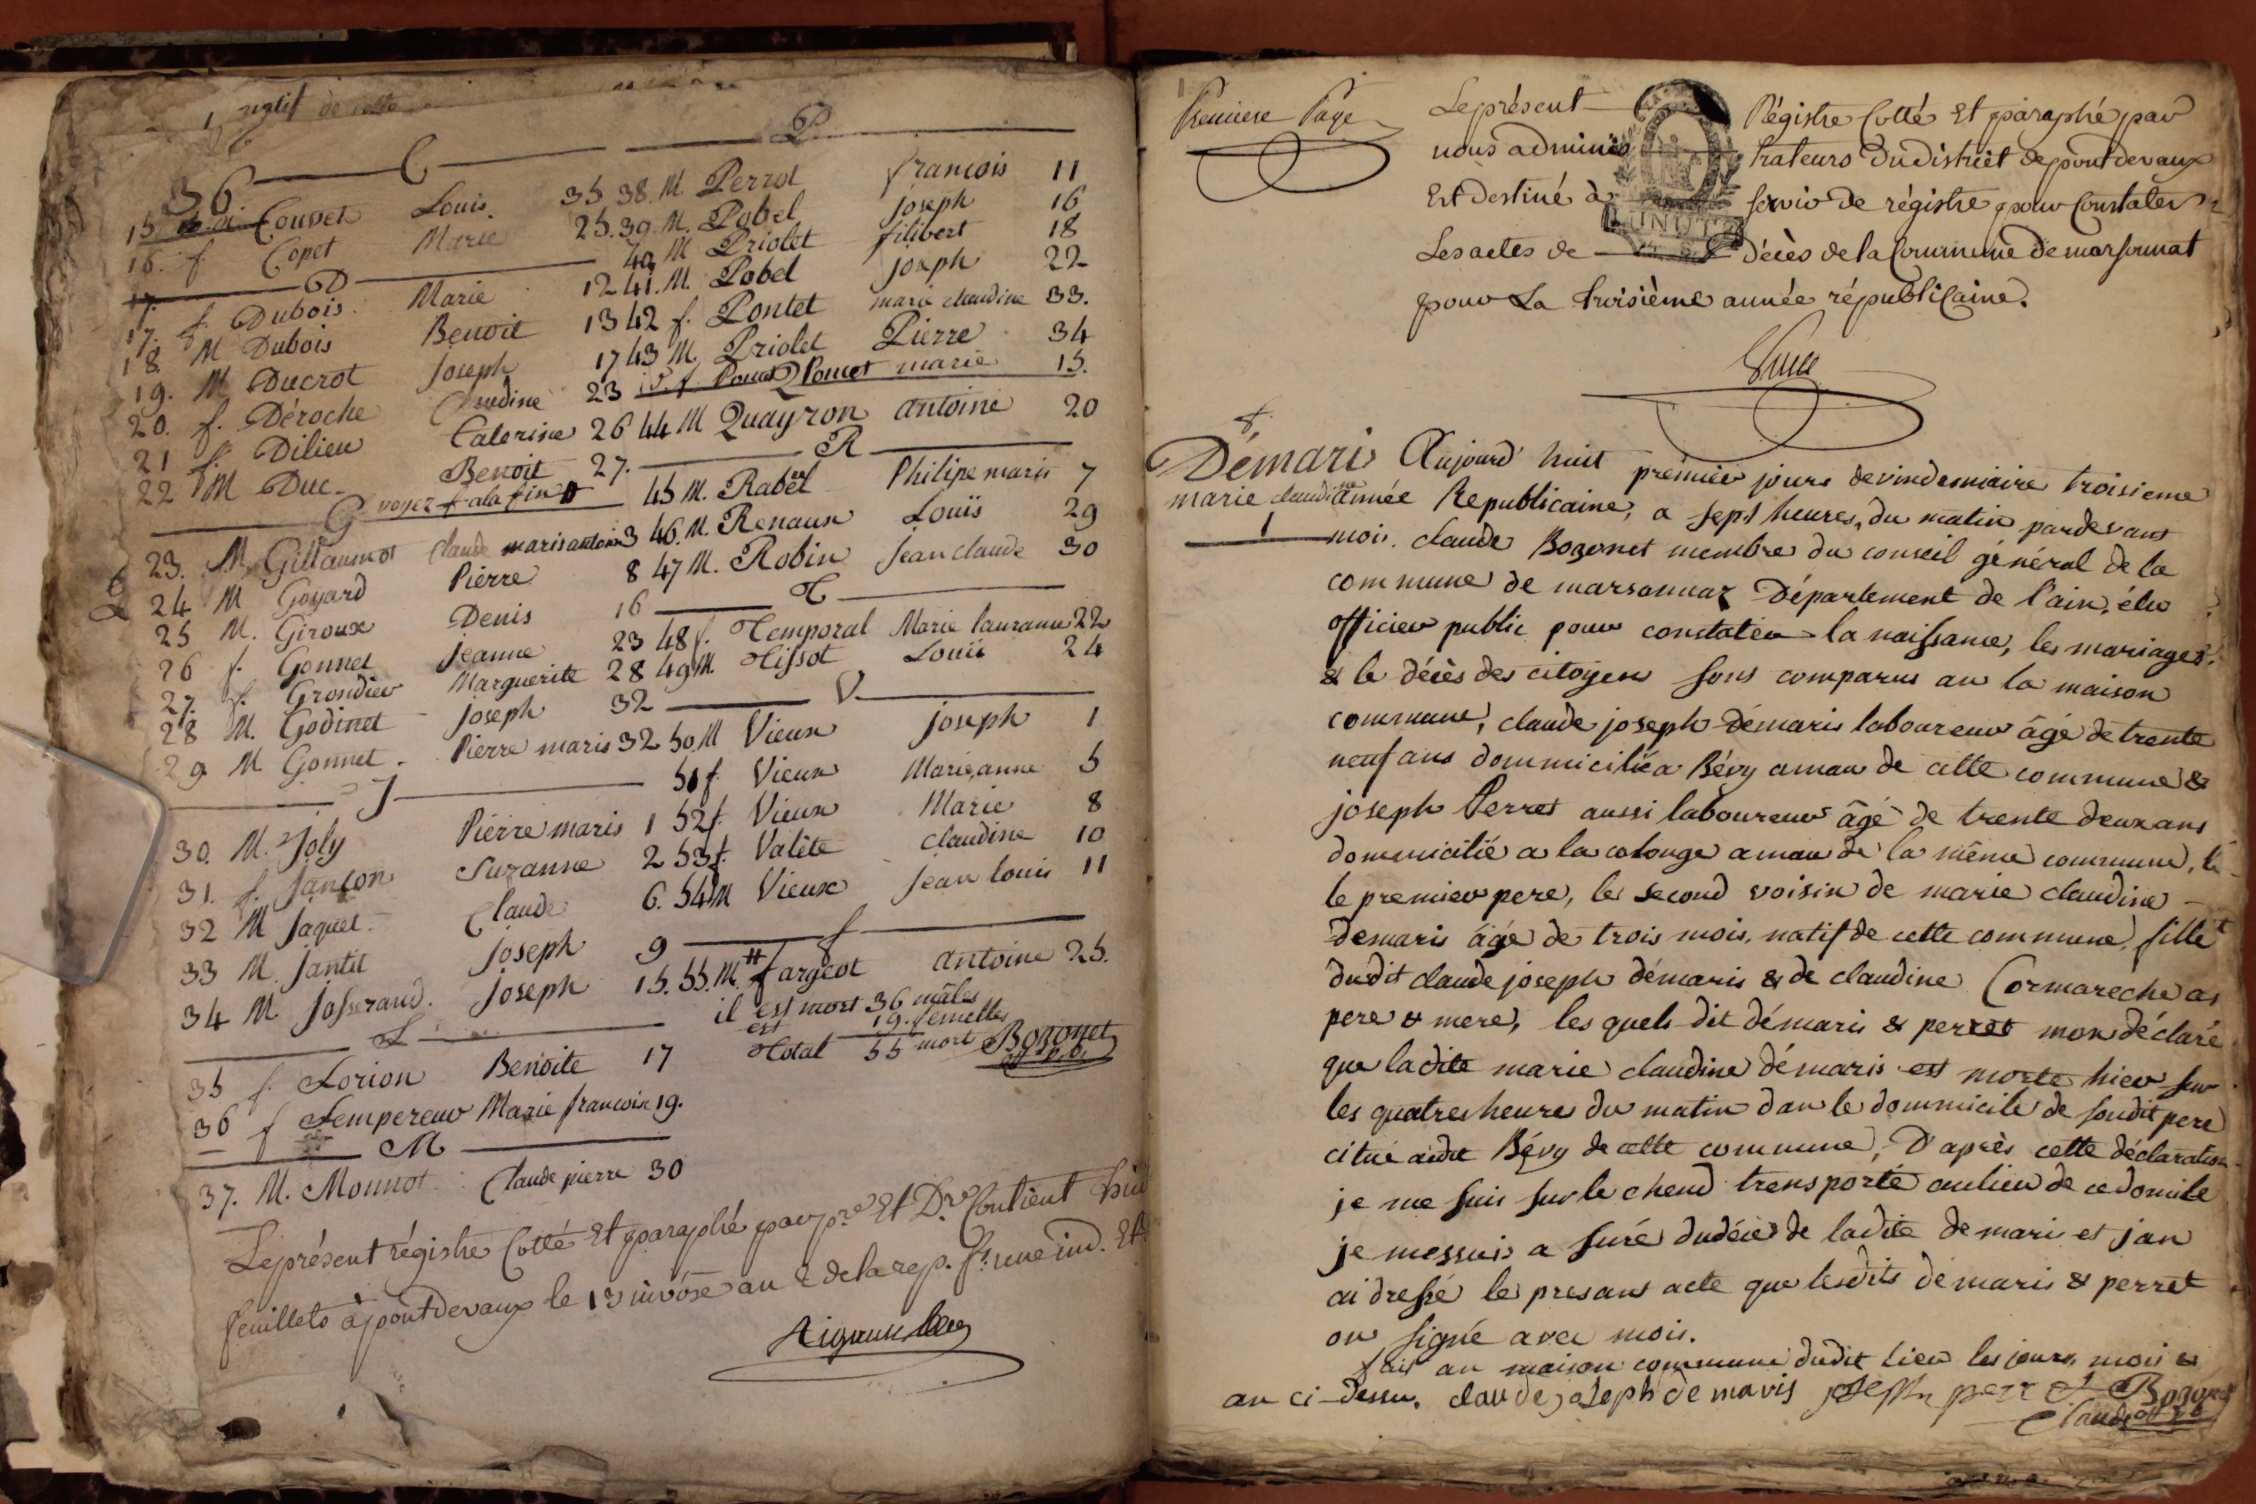 natif de cette
36
C
15 M. Couvet Louis. 35
16. f Copet Marie 25.
D
17. f. Dubois. Marie 12
18 M Dubois Benoit 13
19. M Ducrot joseph 17
20. f. Déroche Claudine 23
21 f. Dilieu Caterine 26
22 M Duc. Benoit 27.
G voyez f a la fin
23. M. Gillaumot Claude maris antoine 3
24 M Goyard Pierre 8
25 M. Giroux Denis 16
26 f. Gonnet jeanne 23
27. f. Grondier Marguerite 28
28 M. Godinet joseph 32
29 M Gonnet. Pierre maris 32
J
30. M. Joly Pierre maris 1
31. f. Jançon Suzanne 2
32 M Jaquet Claude 6.
33 M. Jantit joseph 9
34 M. Josserand. joseph 15.
L
35 f. Lorion Benoite 17
36 f Lempereur Marie francoise 19.
M
37. M. Monnot Claude pierre 30
P
38. M. Perrot francois 11
39. M. Pobel joseph 16
40 M Priolet filibert 18
41. M. Pobel joseph 22
42 f. Pontet marie claudine 33.
43 M. Priolet Pierre 34
f. Poncet marie 15.
Q
44 M Quayron antoine 20
R
45 M. Rabël Philipe maris 7
46. M. Renaux Louïs 29
47 M. Robin jean claude 30
T
48 f. Temporal Marie lauranne 22
49 M. Tissot Louis 24
V
50 M Vieux joseph 1
51 f. Vieux Marie anne 5
52 f. Vieux Marie 8
53 f. Valéte claudine 10
54 M Vieux jean louis 11
f
55. M. fargeot antoine 25.
il est mort 36 mâles
est 19. femelles
Total 55 mort Bozonet
off p.b.
Leprésent régistre Cotté Et paraphé par pre. Et Dr. Contient huit
feuillets à pontdevaux le 13 nivôse an 2 de la rep. fse. une ind. Et
Premiere Page
Leprésent Régistre Cotté Et paraphé par
nous adminis trateurs du district de pontdevaux
Est destiné à servir de régistre pour Constater
Les actes de Décès de la Commune de marsonnat
pour La troisième année républicaine.
f.
Démari Aujourd'huit premier jours de vindemiaire troisieme
marie claudine année Republicaine, a sept heures, du matin pardevant
1 moi. claude Bozonet membre du conseil général de la
commune de marsonnaz Département de l'ain, élu
officier public pour constater la naissance, les mariages,
& le décès des citoyens sons comparus an la maison
commune, claude joseph Démaris laboureur âgé de trente
neuf ans dommicilié a Bévy amau de cette commune &
joseph Perret aussi laboureur âgé de trente deux ans
dommicilié a la colonge amau de la même commune,
le premier pere, le second voisin de marie claudine
demaris âgé de trois mois, natif de cette commune, fille
dudit claude joseph démaris & de claudine Cormareche as
pere & mere, les quels dit démaris & perret mon déclaré
que ladite marie claudine démaris est morte hier sur
les quatres heure du matin dan le dommicile de sondit pere
citué audit Bévy de cette commune, D'après cette déclaration
je me suis sur le chend transporté au lieu de ce domicile
je messuis a suré du décés de ladite demari et j'an
ai dressé le presans acte que lesdits demaris & perret
on signé avec mois.
fait an maison commune dudit lieu les jour, mois &
an ci-dessu. claude joseph demaris joseph perret Bozonet
Claude off p b